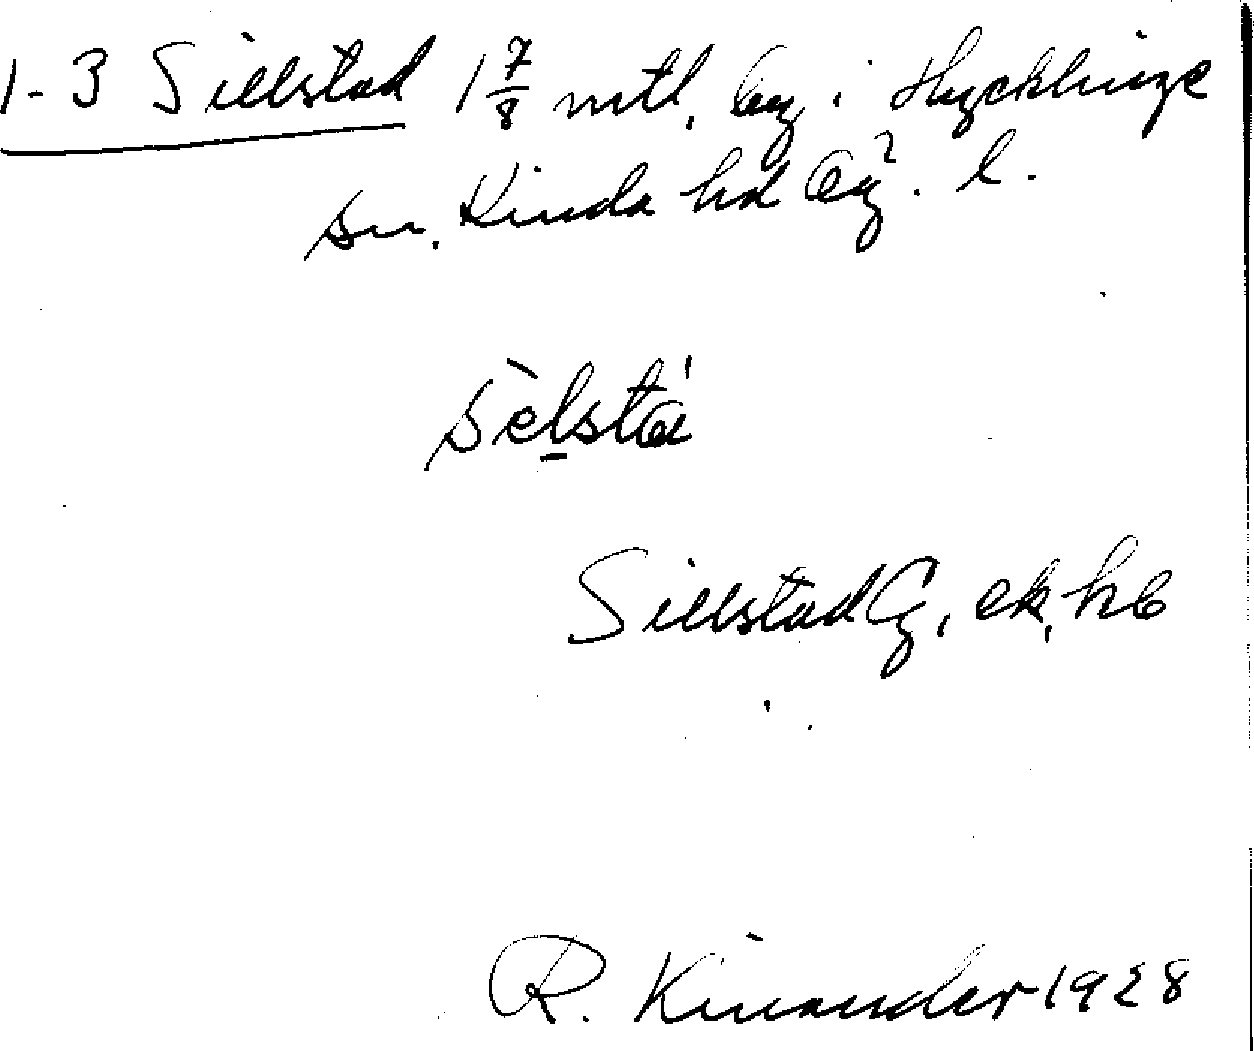 1-3 Sillstad 1 7/8 mtl. by i Hycklinge
sn. Kinda hd Ög. l.
sèlstá
Sillstad G, ek, hb
R. Kinander 1928